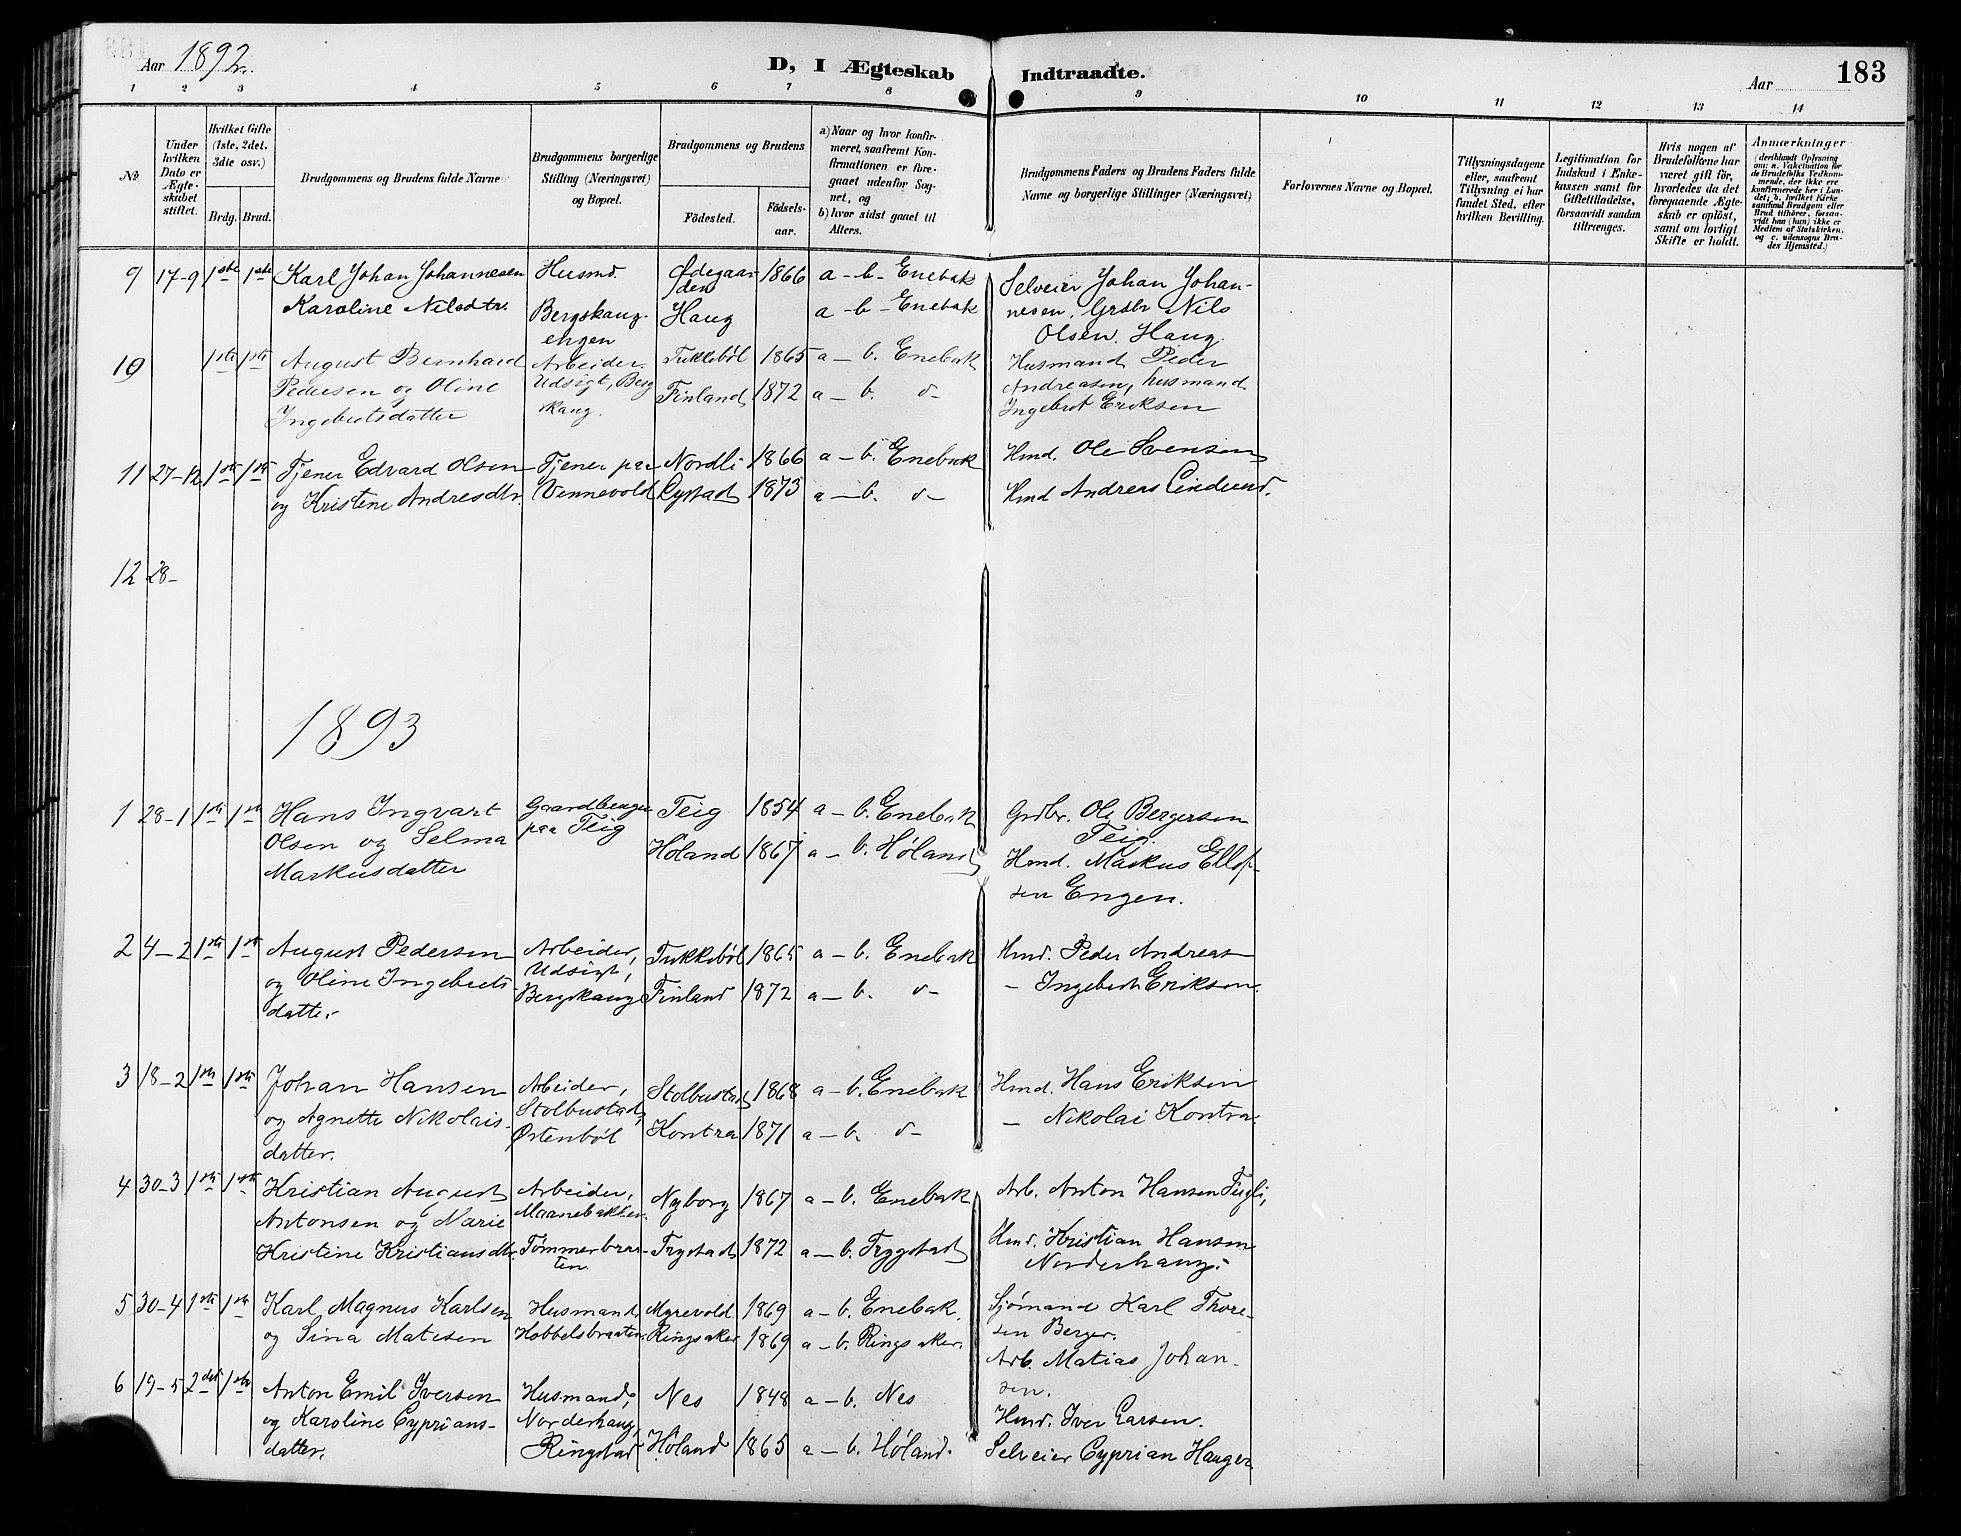 Aar 1892. D, I Ægteskab Indtraadte. Aar 183
1 2 3 4 5 6 7 8 9 10 11 12 13 14
No
Under hvilken Dato er Ægteskabet stiftet.
Hvilket Gifte (1ste, 2det, 3die osv.)
Brdg. Brud.
Brudgommens og Brudens fulde Navne
Brudgommens borgerlige Stilling (Næringsvei) og Bopæl.
Brudgommens og Brudens
Födested. Födsels-aar.
a) Naar og hvor konfirmeret, saafremt Konfirmationen er foregaaet udenfor Sognet, og
b) hvor sidst gaaet til Alters.
Brudgommens Faders og Brudens Faders fulde Navne og borgerlige Stillinger (Næringsvei)
Forlovernes Navne og Bopæl.
Tillysningsdagene eller, saafremt Tillysning ei har fundet Sted, efter hvilken Bevilling.
Legitimation for Indskud i Enkekassen samt for Giftetilladelse, forsaavidt saadan tiltrænges.
Hvis nogen af Brudefolkene har været gift før, hvorledes da det foregaaende Ægteskab er oplöst, samt om lovligt Skifte er holdt.
Anmærkninger
(deriblandt Oplysning om: a. Vakcination for de Brudefolks Vedkommende, der ikke ere konfirmerede her i Landet; b. hvilket Kirkesamfund Brudgom eller Brud tilhörer, forsaavidt han (hun) ikke er Medlem af Statskirken, og c. udensogns Brudes Hjemsted.)
9 17-9 1ste 1ste Karl Johan Johannesen Husmd. Ødegaarden 1866 a-b- Enebak Selveier Johan Johan-
Karoline Nilsdtr. Bergskaug- Haug a-b- Enebak nesen, Grdbr Nils
engen Olsen Haug.
10 1ste 1ste August Bernhard Arbeider. Tukkebøl 1865 a-b. Enebak Husmand Peder
Pedersen og Oline Udsigt, Berg Finland 1872 a-b. d- Andreasen, husmand
Ingebretsdatter skaug. Ingebret Eriksen
11 27-12 1ste 1ste Tjener Edvard Olsen Tjener paa Nordli 1866 a-b. Enebak Hmd. Ole Svensen
og Kristine Andresdtr. Vennevold Lystad 1873 a-b. d- Hmd Andreas Lindlund.
12 28-
1893
1 28-1 1ste 1ste Hans Ingvart Gaardbruger Teig 1854 a-b. Enebak Grdbr. Ole Bergersen
Olsen og Selma paa Teig Høland 1867 a-b. Høland Teig.
Markusdatter Hmd. Markus Ellef-
sen Engen.
2 4-2 1ste 1ste August Pedersen Arbeider, Tukkebøl 1865 a-b. Enebak Hmd. Peder Andreas
og Oline Ingebrets Udsigt, Finland 1872 a-b. d- - Ingebret Eriksen.
datter Bergskaug
3 18-2 1ste 1ste Johan Hansen Arbeider, Stolbustad 1868 a-b. Enebak Hmd. Hans Eriksen
og Agnette Nikolais- Stolbustad, Kontra 1871 a-b. d- - Nikolai Kontra.
datter. Østenbøl
4 30-3 1ste 1ste Kristian August Arbeider, Nyborg 1867 a-b. Enebak Arb. Anton Hansen Fugli,
Antonsen og Marie Maanebakken. Hmd. Kristian Hansen
Kristine Kristiansdtr. Tømmerbraa- Trystad 1872 a-b. Trygstad Norderhaug.
ten.
5 30-4 1ste 1ste Karl Magnus Karlsen Husmand Myrevold 1869 a-b. Enebak. Sjømand Karl Thore-
og Sina Matisen Hobbelsbraaten. Ringsaker 1869 a-b. Ringsaker. sen Berger.
Arb. Matias Johan-
sen.
6 19-5 2det 1ste Anton Emil Iversen Husmand, Nes 1848 a-b. Nes Hmd. Iver Larsen.
og Karoline Cyprians- Norderhaug, Høland 1865 a-b. Høland. Selveier Cyprian Hauger.
datter. Ringstad